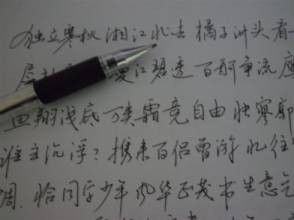 独立寒秋 湘江北去 橘子洲头 看
层 漫江碧透 百舸争流 鹰
鱼翔浅底 万类霜竞自由 怅寥廓
谁主沉浮? 携来百侣曾游 忆往
稠. 恰同学少年 风华正茂 书生意气